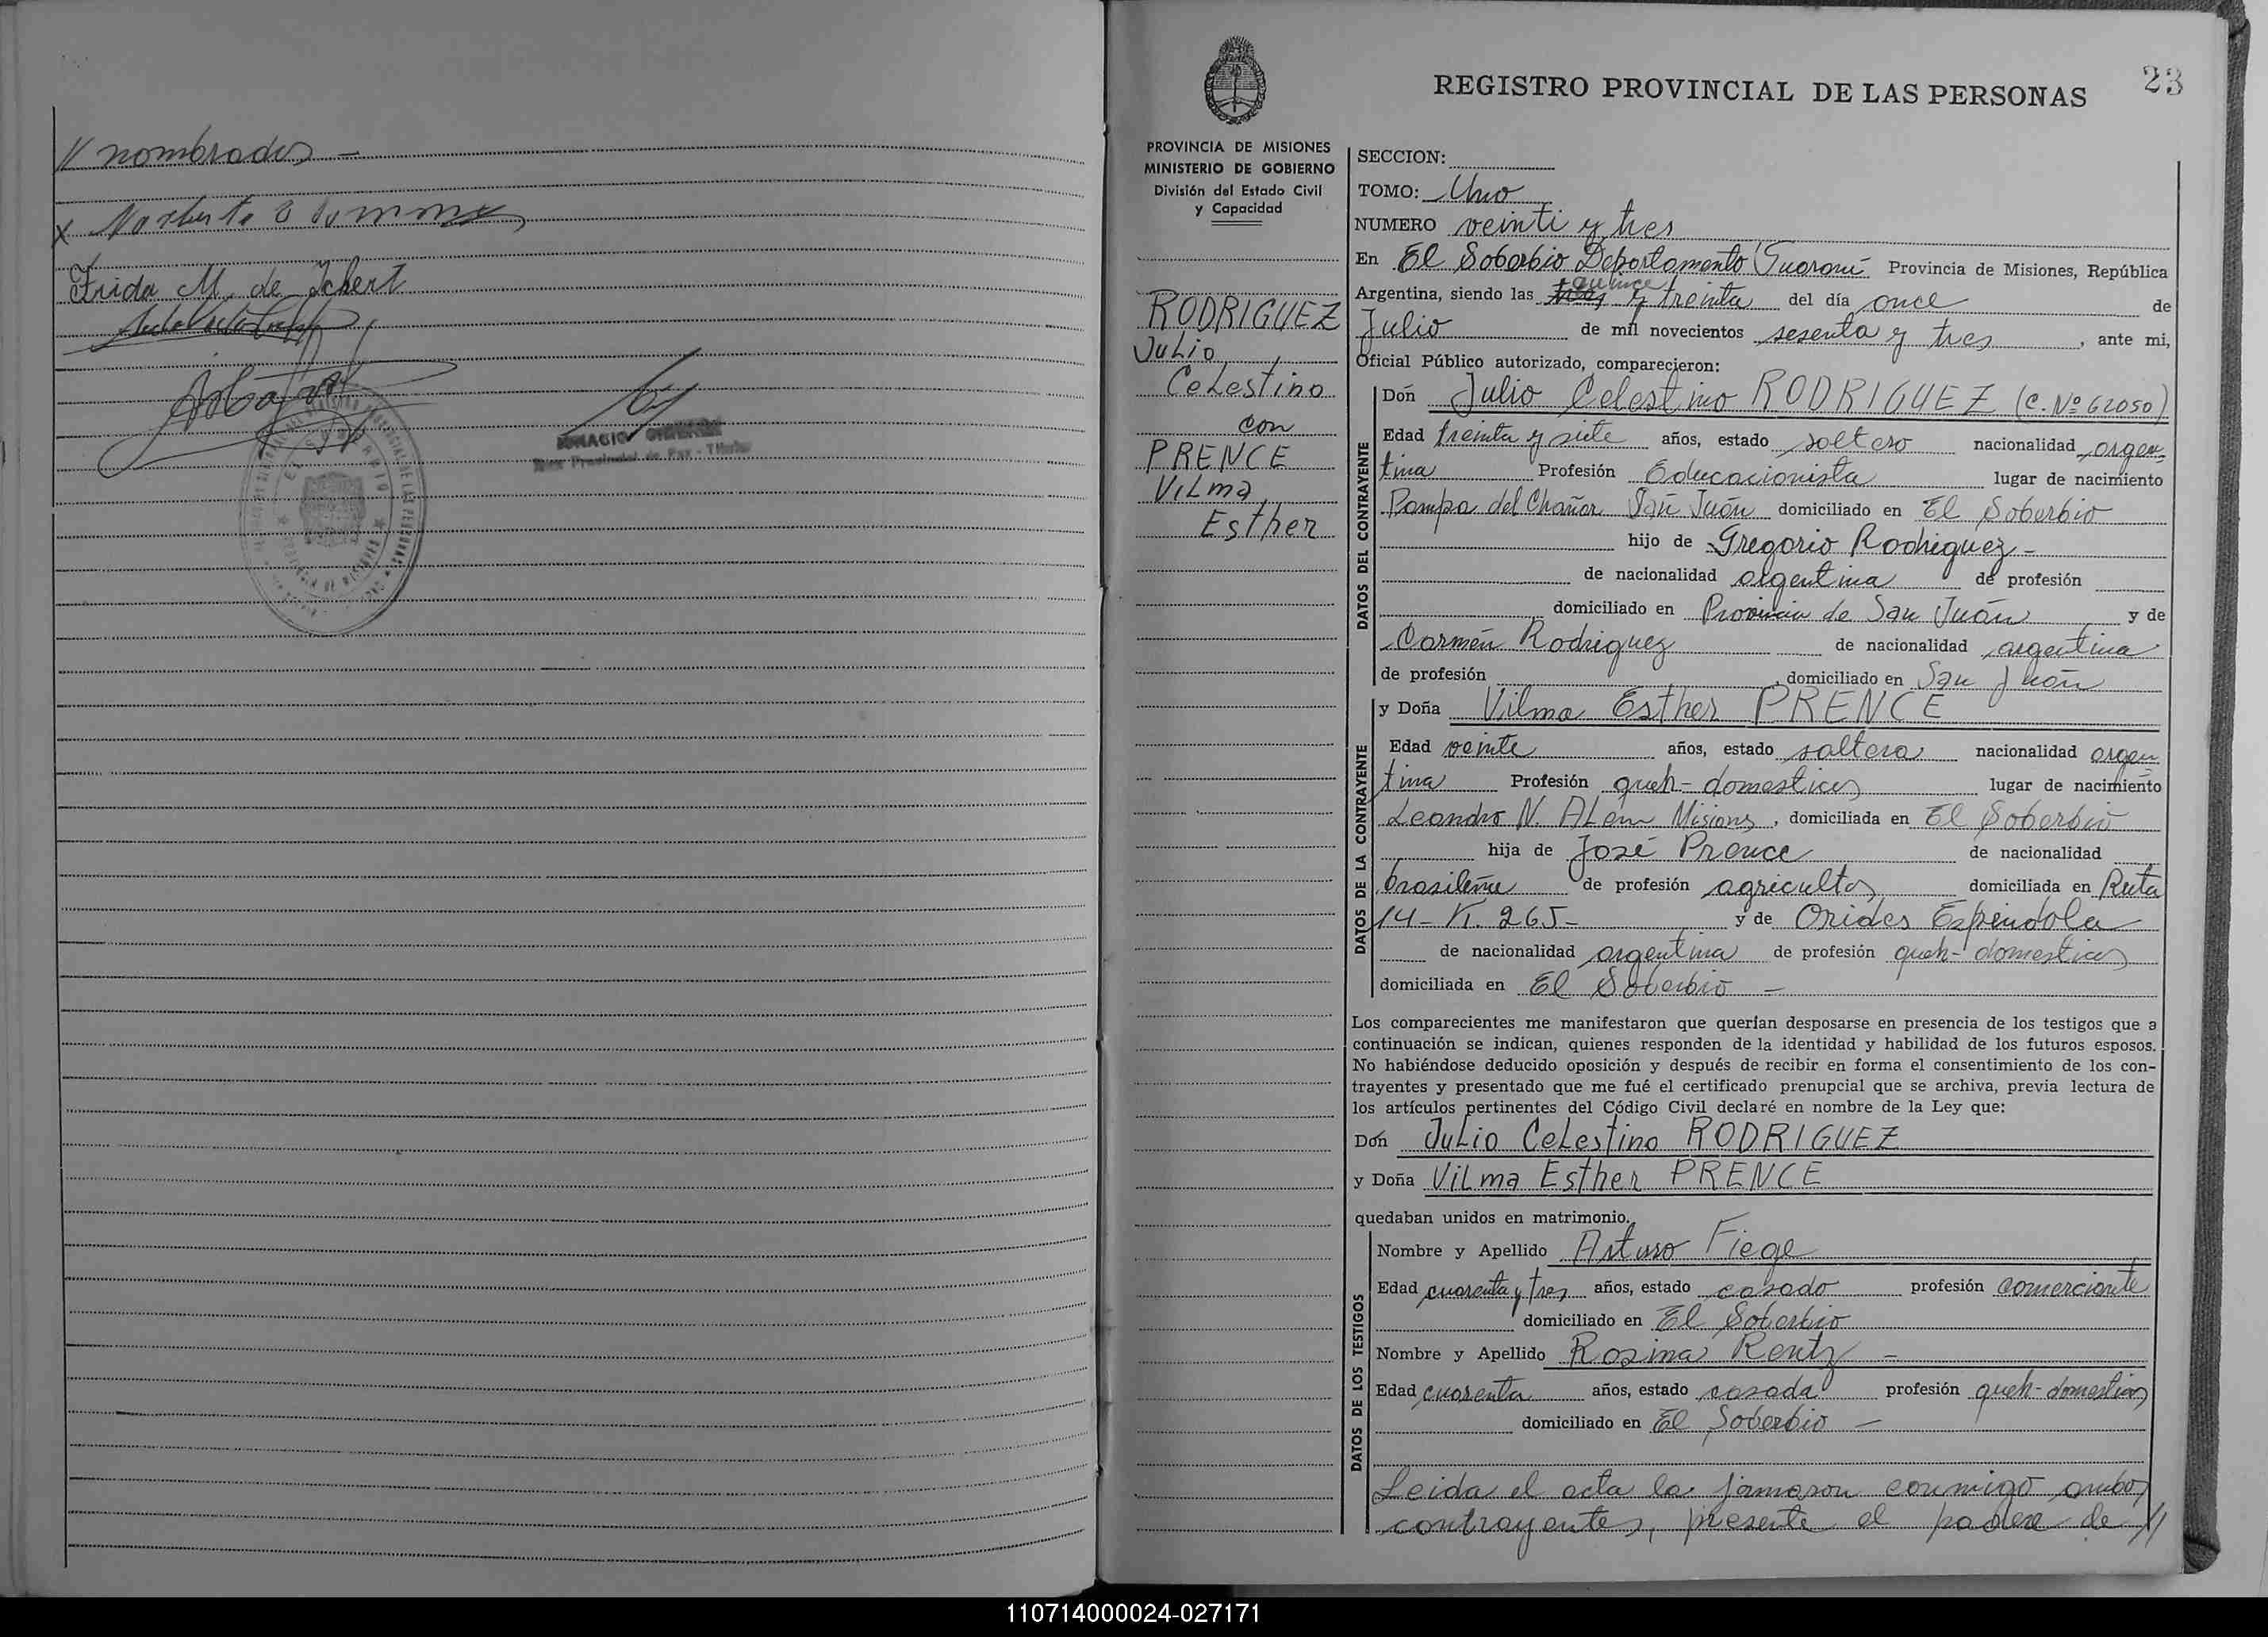 // nombrados -
x
Frida M. de Ichert
IGNACIO
Juez Provincial de Paz - Titular
REGISTRO PROVINCIAL DE LAS PERSONAS
23
PROVINCIA DE MISIONES
MINISTERIO DE GOBIERNO
División del Estado Civil
y Capacidad
RODRIGUEZ
Julio
Celestino
con
PRENCE
Vilma
Esther
SECCION:
TOMO: Uno
NUMERO veinti y tres
En El Soberbio Departamento Guaraní Provincia de Misiones, República
quince
Argentina, siendo las tres y treinta del día once de
Julio de mil novecientos sesenta y tres, ante mi,
Oficial Público autorizado, comparecieron:
DATOS DEL CONTRAYENTE
Don Julio Celestino RODRIGUEZ (C. Nº 62050)
Edad treinta y siete años, estado soltero nacionalidad argen-
tina Profesión Educacionista lugar de nacimiento
Pampa del Chañar San Juán domiciliado en El Soberbio
hijo de Gregorio Rodriguez -
de nacionalidad argentina de profesión
domiciliado en Provincia de San Juán y de
Carmen Rodriguez de nacionalidad argentina
de profesión , domiciliado en San Juán
DATOS DE LA CONTRAYENTE
y Doña Vilma Esther PRENCE
Edad veinte años, estado soltera nacionalidad argen
tina Profesión queh-domesticos lugar de nacimiento
Leandro N. Alem Misiones, domiciliada en El Soberbio
hija de José Prence de nacionalidad
brasileña de profesión agricultor domiciliada en Ruta
14 - K. 265 - y de Orides Espindola
de nacionalidad argentina de profesión queh-domesticos
domiciliada en El Soberbio -
Los comparecientes me manifestaron que querían desposarse en presencia de los testigos que a
continuación se indican, quienes responden de la identidad y habilidad de los futuros esposos.
No habiéndose deducido oposición y después de recibir en forma el consentimiento de los con-
trayentes y presentado que me fué el certificado prenupcial que se archiva, previa lectura de
los artículos pertinentes del Código Civil declaré en nombre de la Ley que:
Don Julio Celestino RODRIGUEZ
y Doña Vilma Esther PRENCE
quedaban unidos en matrimonio.
DATOS DE LOS TESTIGOS
Nombre y Apellido Arturo Fiege
Edad cuarenta y tres años, estado casado profesión comerciante
domiciliado en El Soberbio
Nombre y Apellido Rosina Rentz -
Edad cuarenta años, estado casada profesión queh-domesticos
domiciliado en El Soberbio -
Leida el acta la firmaron conmigo ambos
contrayentes, presente el padre de //
110714000024-027171